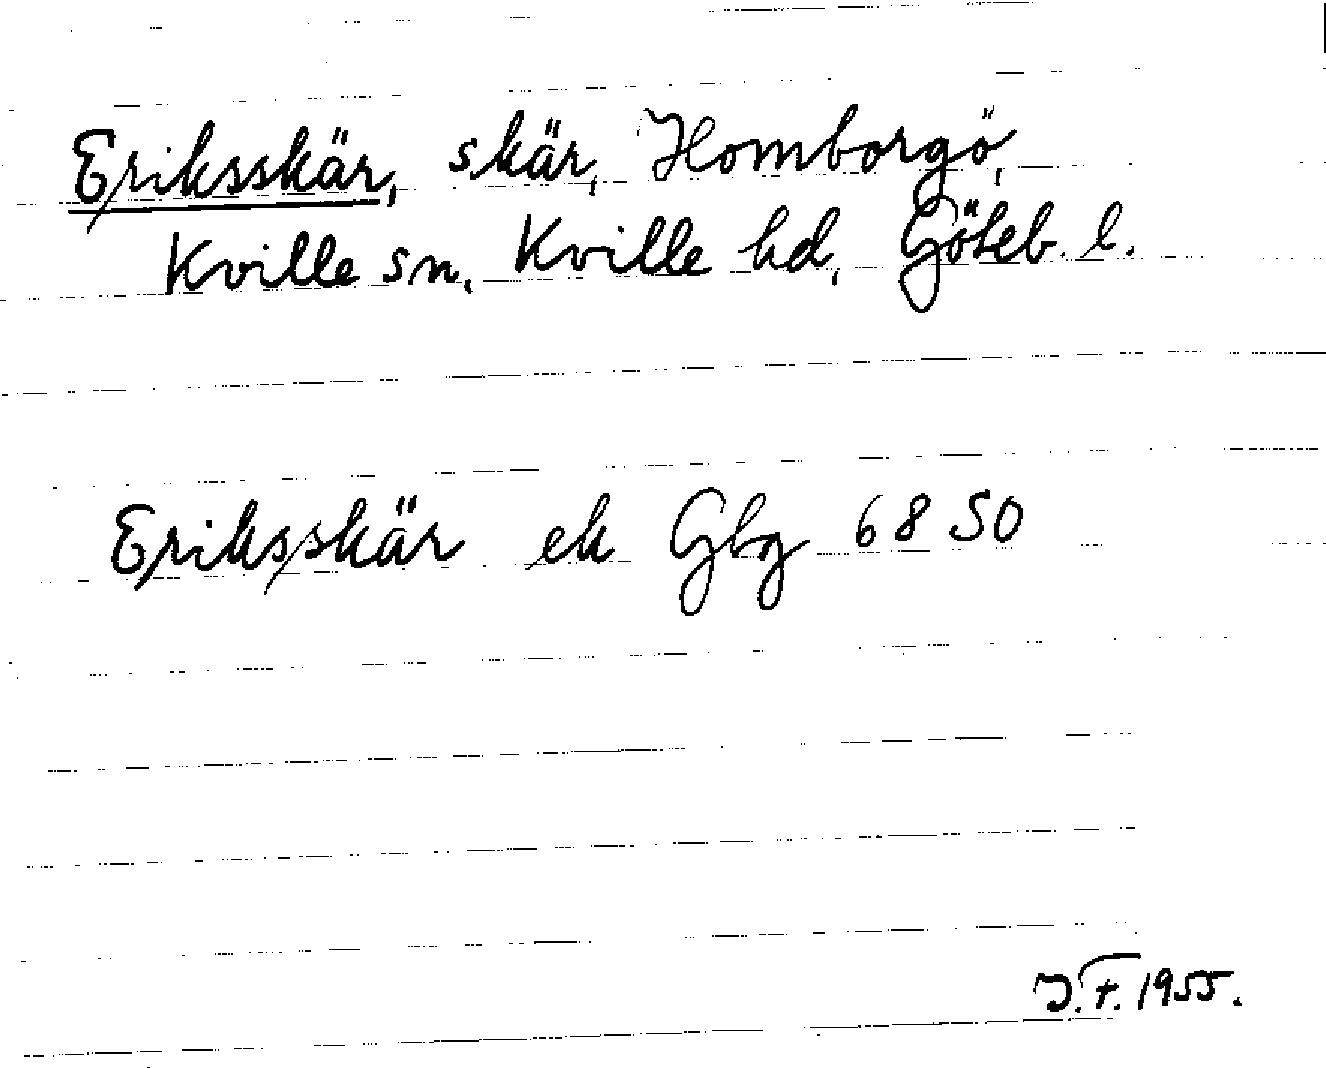 Eriksskär, skär, Homborgö,
Kville sn, Kville hd, Göteb. l.
Eriksskär ek Gbg 6850
J.F. 1955.